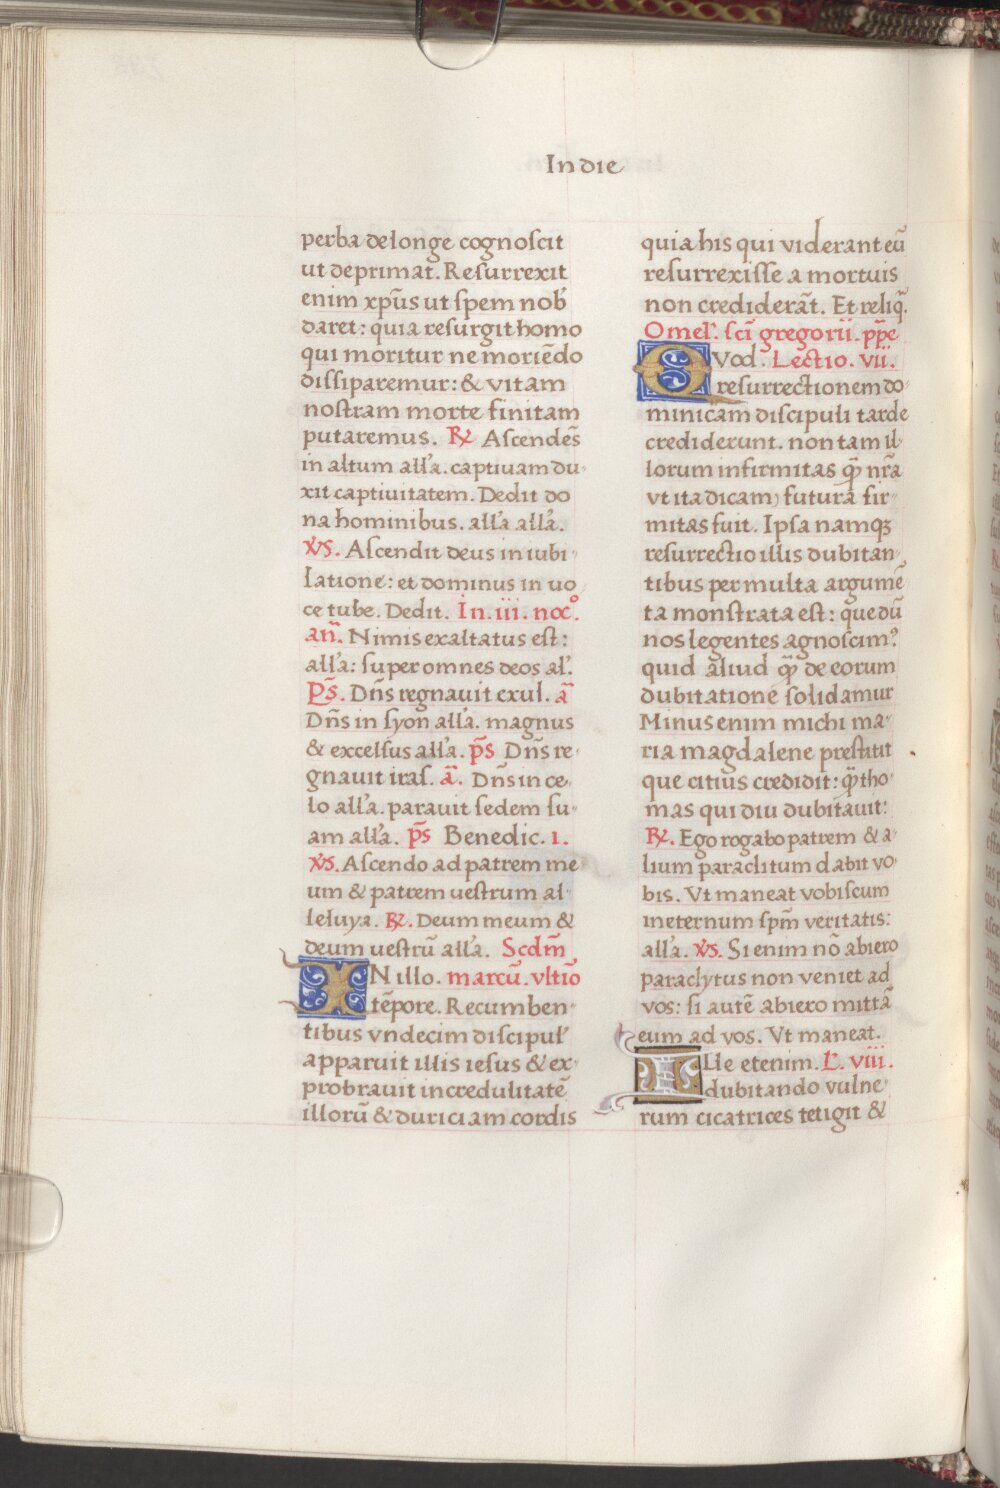 In die
perba de longe cognoscit
ut deprimat. Resurrexit
enim xp̄us ut spem nob̓
daret: quia resurgit homo
qui moritur ne moriēdo
dissiparemur: & vitam
nostram morte finitam
putaremus. ℟ Ascendēs
in altum all̓a. captiuam du-
xit captiuitatem. Dedit do
na hominibus. all̓a all̓a.
℣s. Ascendit deus in iubi-
latione: et dominus in uo
ce tube. Dedit. In. iii. noc̊.
an̄. Nimis exaltatus est:
all̓a: super omnes deos al̓.
Ps̄. Dn̄s regnauit exul. ā
Dn̄s in syon all̓a. magnus
& excelsus all̓a. ps̄ Dn̄s re-
gnauit iras. ā. Dn̄s in ce-
lo all̓a. parauit sedem su-
am all̓a. ps̄ Benedic. 1.
℣s. Ascendo ad patrem me
um & patrem uestrum al-
leluya. ℟. Deum meum &
deum uestrū all̓a. Scdm̄
IN illo. marcū. vltīo
tēpore. Recumben-
tibus vndecim discipul̓
apparuit illis iesus & ex-
probrauit incredulitatē
illorū & duriciam cordis
quia his qui viderant eū
resurrexisse a mortuis
non crediderāt. Et reliq̄.
Omel̓. sc̄i gregorii. pp̄e
QVod. Lectio. vii.
resurrectionem do-
minicam discipuli tarde
crediderunt. non tam il-
lorum infirmitas q̄ꝫ nr̄a
vt ita dicam) futura fir-
mitas fuit. Ipsa namqꝫ
resurrectio illis dubitan-
tibus per multa argumē
ta monstrata est: que dū
nos legentes agnoscimꝰ
quid aliud q̄ꝫ de eorum
dubitatione solidamur
Minus enim michi ma-
ria magdalene prestitit
que citius credidit: q̄ꝫ tho-
mas qui diu dubitauit:
℟. Ego rogabo patrem & a-
lium paraclitum dabit vo-
bis. Vt maneat vobiscum
in eternum spm̄ veritatis:
all̓a. ℣s. Si enim nō abiero
paraclytus non veniet ad
vos: si autē abiero mittā
eum ad vos. Vt maneat.
ILle etenim. L̓. viii.
dubitando vulne-
rum cicatrices tetigit &